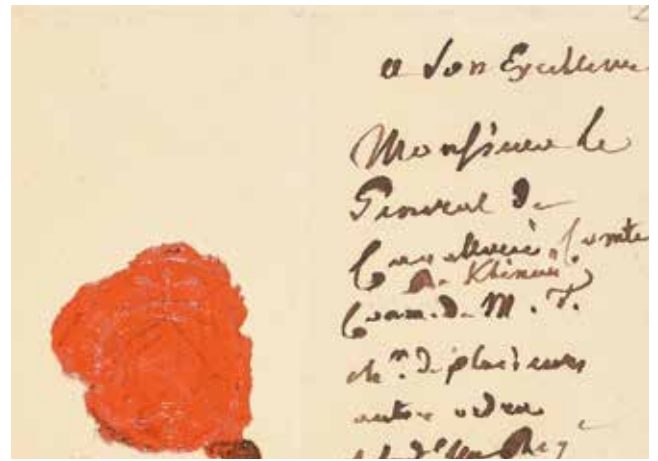 a Son Excellence
Monsieur le
General de
Cavallerie Comte
de Klenau
Com. d. M. T.
ch.ʳ de plusieurs
autre ordre